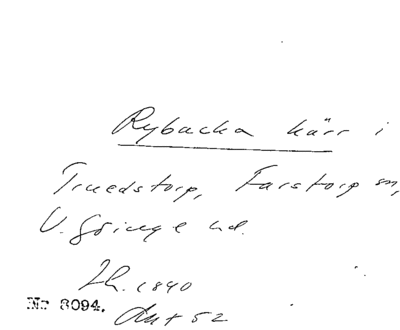 Rybacka kärr i
Truedstorp, Farstorp sn,
V. Göinge hd.
Lh. 1840
Nr 8094.
Akt 52